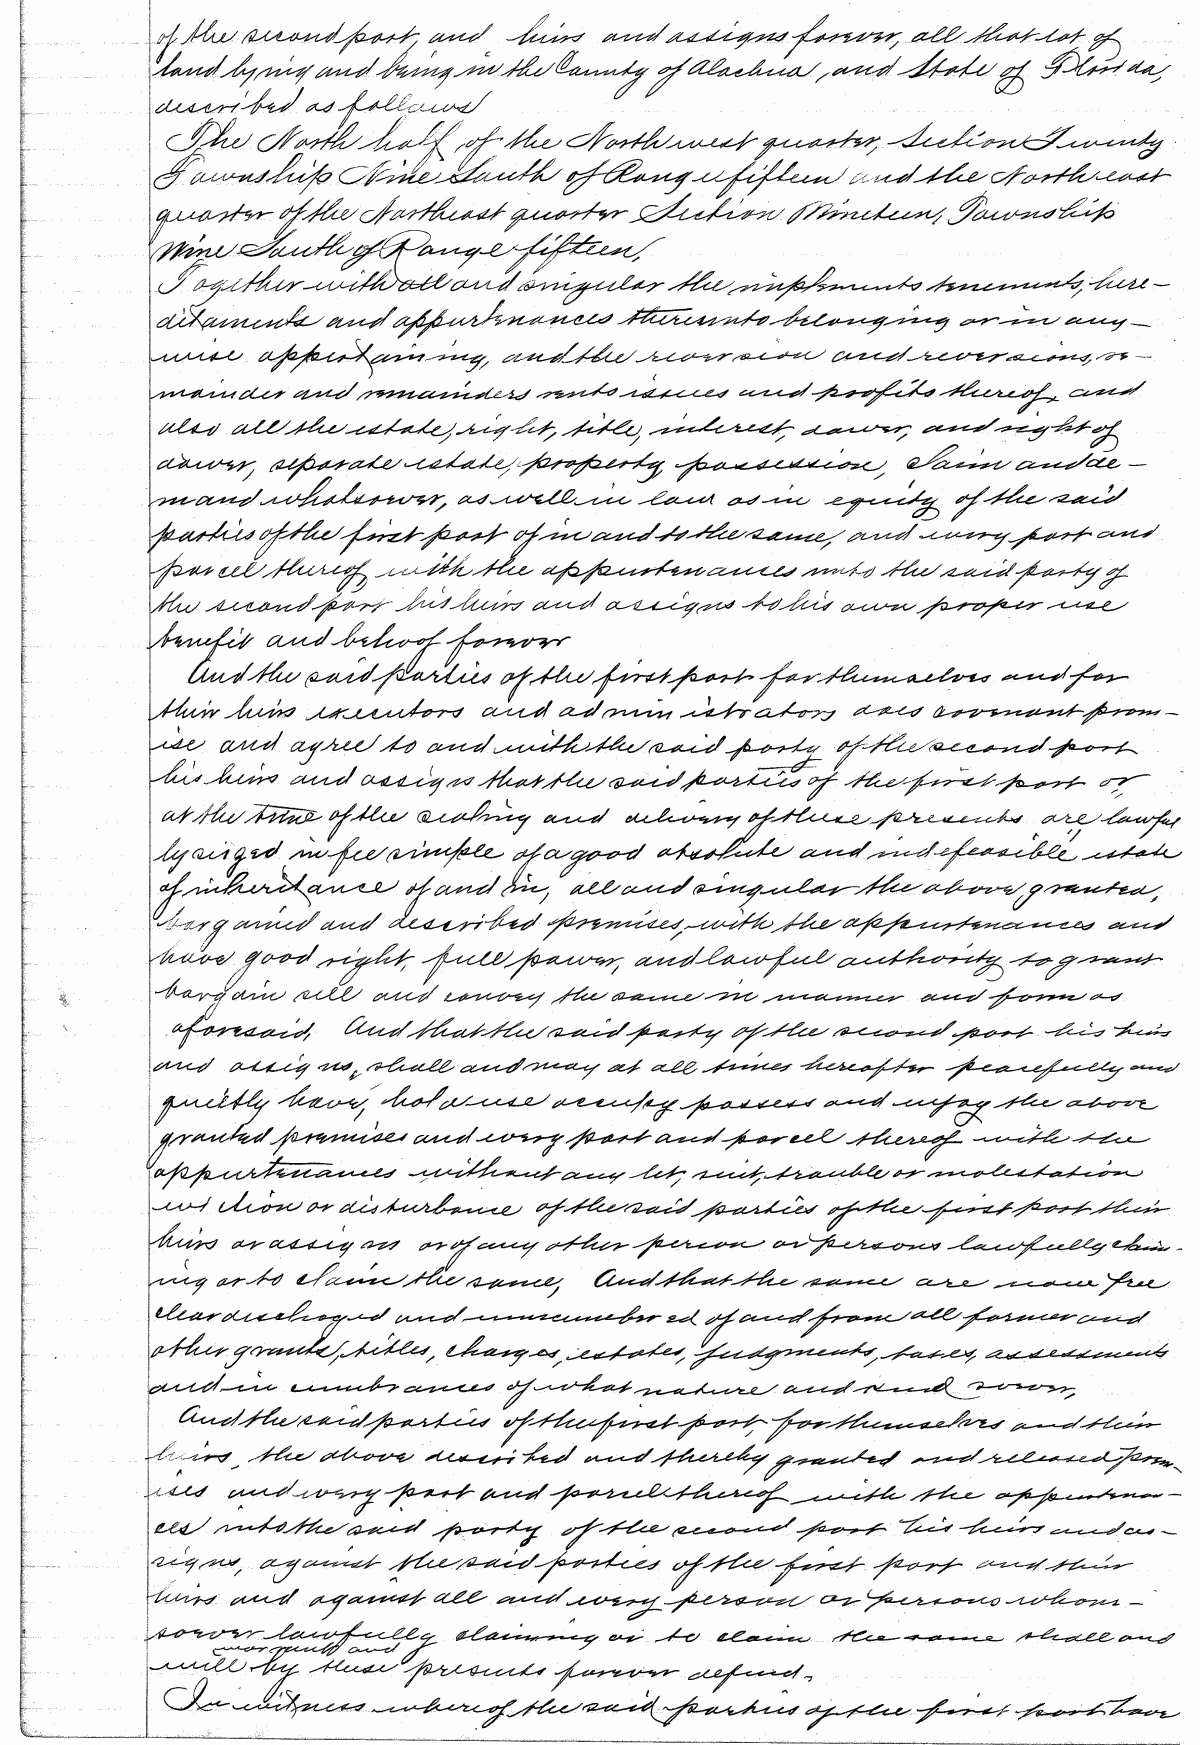 of the second part, and heirs and assigns forever, all that lot of
land lying and being in the County of Alachua, and State of Florida,
described as follows
The North half of the North west quarter, Section Twenty
Township Nine South of Range fifteen and the North east
quarter of the Northeast quarter Section Nineteen, Township
Nine South of Range fifteen,
Together with all and singular the impliments tenements, here-
ditaments and appurtenances thereunto belonging or in any-
wise appertaining, and the reversion and reversions, re-
mainder and remainders rents issues and profits thereof, and
also all the estate, right, title, interest, dower, and right of
dower, separate estate, property possession, Claim and de-
mand whatsoever, as well in law as in equity of the said
parties of the first part of in and to the same, and every part and
parcel thereof with the appurtenances unto the said party of
the second part his heirs and assigns to his own proper use
benefit and behoof forever
And the said parties of the first part for themselves and for
their heirs executors and administrators does covenant prom-
ise and agree to and with the said party of the second part
his heirs and assigns that the said parties of the first part
at the time of the sealing and delivery of these presents are lawful
ly siezed in fee simple of a good absolute and indefeasible estate
of inheritance of and in, all and singular the above, granted,
bargained and described premises, with the appurtenances and
have good right, full power, and lawful authority to grant
bargain sell and convey the same in manner and form as
aforesaid, And that the said party of the second part his heirs
and assigns, shall and may at all times hereafter peacefully and
quietly have, hold use occupy possess and enjoy the above
granted premises and every part and parcel thereof with the
appurtenances without any let, suit, trouble or molestation
eviction or disturbance of the said parties of the first part their
heirs or assigns or of any other person or persons lawfully claim-
ing or to claim the same, And that the same are now free
clear discharged and unincumbered of and from all former and
other grants, titles, charges, estates, judgments, taxes, assessments
and in cumbrances of what nature and kind soever,
And the said parties of the first part, for themselves and their
heirs, the above described and thereby granted and released prem-
ises and every part and parcel thereof with the appurtenan-
ces unto the said party of the second part his heirs and as-
signs, against the said parties of the first part and their
heirs and against all and every person or persons whom-
soever lawfully claiming or to claim the same shall and
warrant and
will by these presents forever defend.
In witness whereof the said parties of the first part have